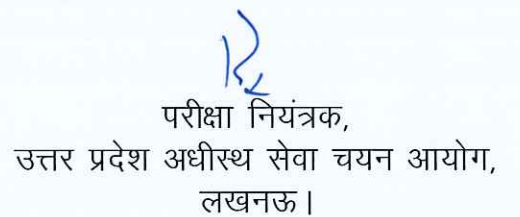 परीक्षा नियंत्रक,
उत्तर प्रदेश अधीस्थ सेवा चयन आयोग,
लखनऊ।